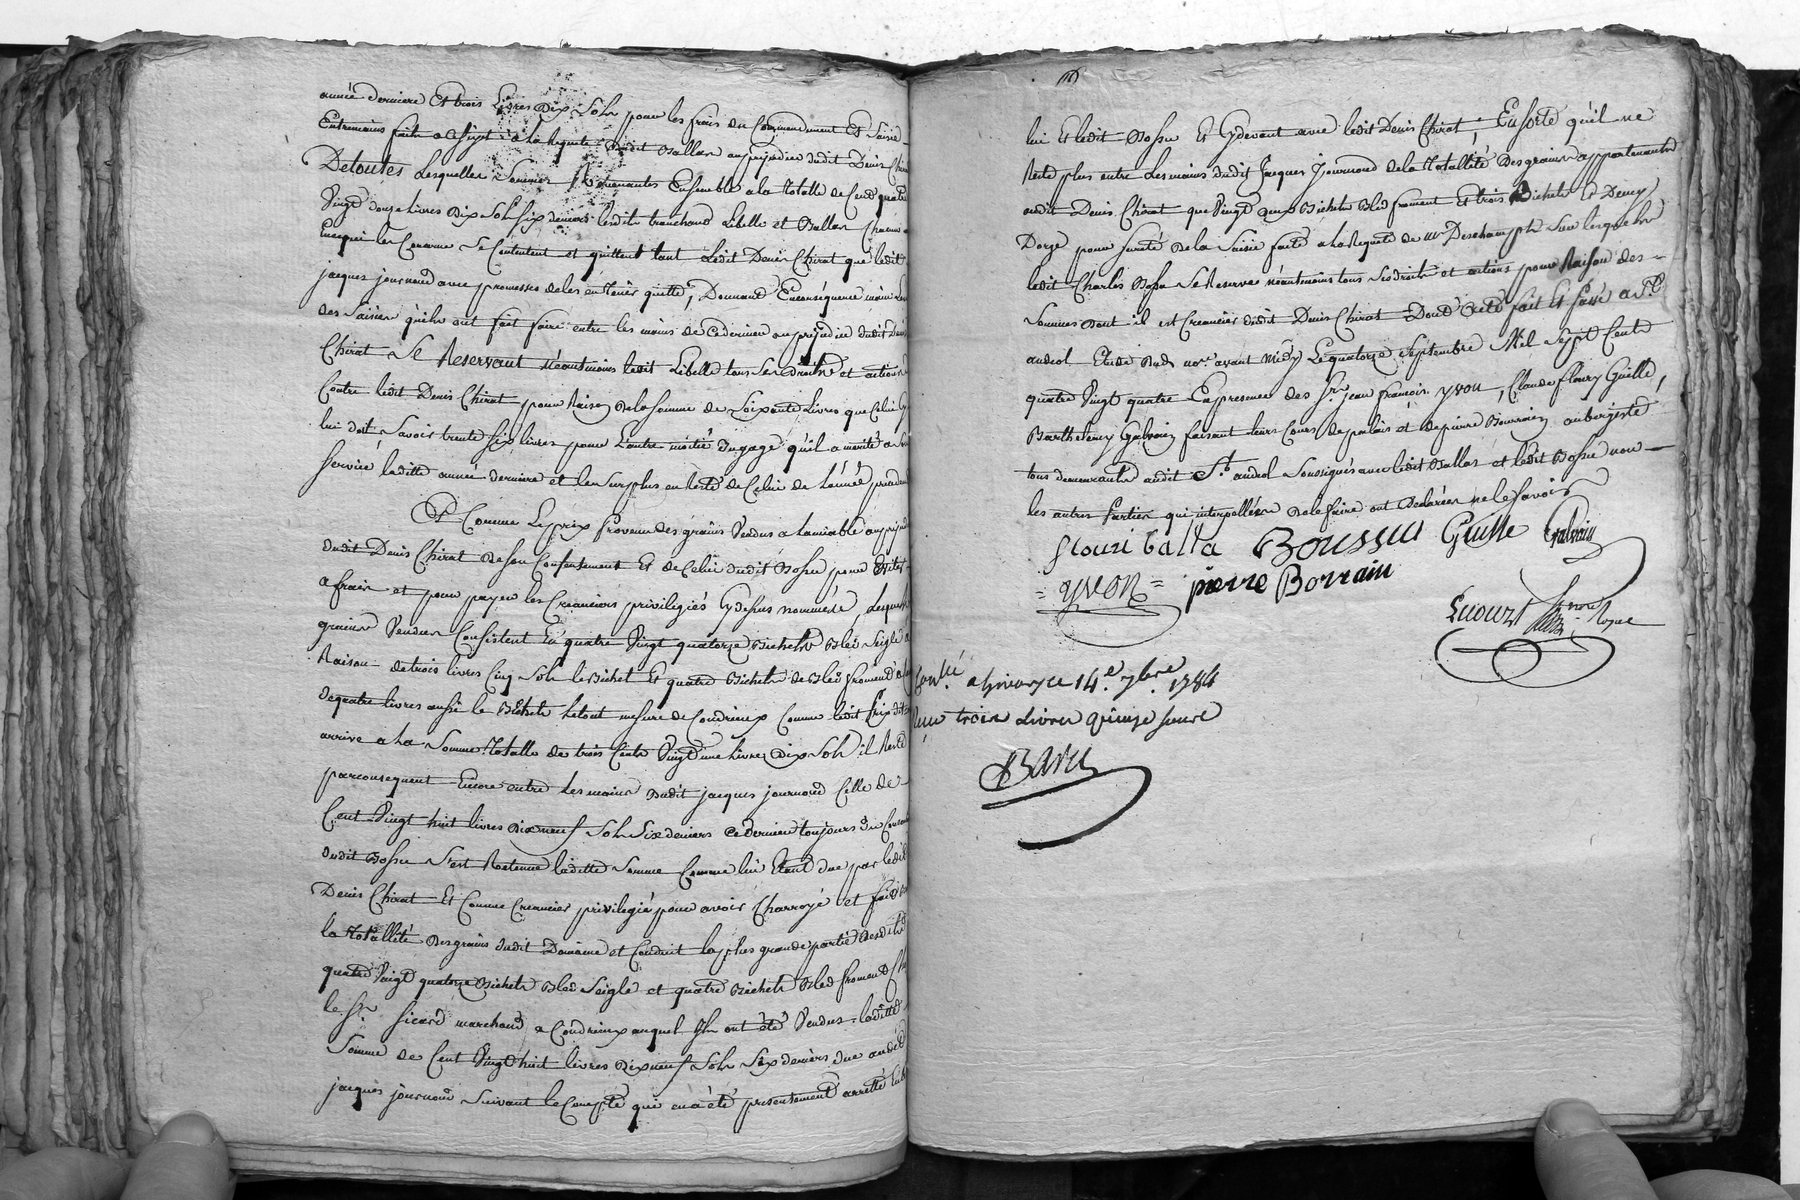 année derniere Et trois Livres Dix Sols pour les frais du Commandement Et Saisie
Entremains faite a la Requete dudit Ballas au prejudice dudit Denis Chirat
De toutes Lesquelles Sommes Revenantes Ensemble a la totalle de Cent quatre
Vingt douze Livres Dix Sols Six deniers lesdits tranchand Libelle et Ballas Chacun
En ce qui les Concerne Se Contentent et quittent tant Ledit Denis Chirat que ledit
jacques journoud avec promesses de les en tenir quitte, Donnant En conséquence main Levée
des Saisies qu'ils ont fait faire entre les mains de ce dernier au prejudice dudit Denis
Chirat Se Reservant Néantmoins ledit Libelle tous Ses droits et actions
Contre ledit Denis Chirat pour Raison de la Somme de Soixante Livres que Celui Cy
lui doit Savoir trente Six livres pour L'autre moitié du gage qu'il a merité a son
Service laditte année derniere et les Surplus en Reste de Celui de l'année precedente
Et Comme Le prix Provenu des grains Vendus a l'amiable au prejudice
dudit Denis Chirat de son Consentement Et de Celui dudit Bossu pour Eviter
a frais et pour payer les Creanciers privilegiés Cy dessus nommés, Lesquels
grains Vendus Consistent En quatre Vingt quatorze Bichets Bled Seigle a
Raison de trois livres Cinq Sols le Bichet Et quatre Bichets de Bled froment a
de quatre livres aussi le Bichet le tout mesure de Condrieux Comme ledit prix
arrive a la Somme Totalle de trois Cents Vingt une Livres Dix Sols il Reste
par consequent Encore entre les mains dudit jacques journoud Celle de
Cent Vingt huit livres Dix neuf Sols Six deniers Ce dernier toujours du Consentement
dudit Bossu S'est Retenue laditte Somme Comme lui Etant due par ledit
Denis Chirat Et Comme Creancier privilegié pour avoir Charroyé et fait
la Totallité Des grains dudit Domaine et Conduit la plus grande partie desdits
quatre Vingt quatorze Bichets Bled Seigle et quatre Bichets Bled froment Chez
le Sr. Sicard marchand a Condrieux auquel Ils ont été Vendus, laditte
Somme de Cent Vingt huit livres Dix neuf Sols Six deniers due audit
jacques journoud Suivant le Compte qui en a été presentement arretté Entre
lui Et ledit Bossu Et Cydevant avec ledit Denis Chirat, En sorte qu'il ne
Reste plus entre Les mains dudit Jacques Journoud de la Totallité Des grains appartenants
audit Denis Chirat que Vingt deux Bichets Bled froment Et trois Bichets Et Demy
Dorge pour sureté de la Saisie faite a la Requete de Mr Deschamps Sur lesquels
ledit Charles Bossu Se Reserve néantmoins tous Ses droits et actions pour Raison des
Sommes dont il est Creancier dudit Denis Chirat Dont Acte fait Et Passé a St.
andeol Etude dud. nore. avant Midy Le quatorze Septembre Mil Sept Cents
quatre Vingt quatre En presence des Srs jean francois yvon, Claude fleury Guille,
Barthelemy Galvain faisant leurs Cours de palais et de pierre Bourrain aubergiste
tous demeurants audit St. andeol Soussignés avec ledit Ballas et ledit Bossu non
les autres Parties qui interpellées de le faire ont Declarées ne le Savoir
flouri balla Boussu Guille Galvain
= yvon = pierre Borrain
Lucourt nore Royal
Conllé a Givors ce 14e. 7bre. 1784
Reçu trois Livres quinze sous